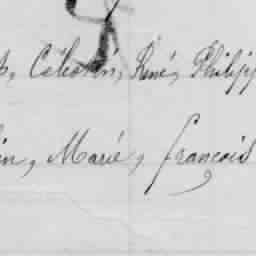 Célestin, René, Philipp
in, Marie, françois